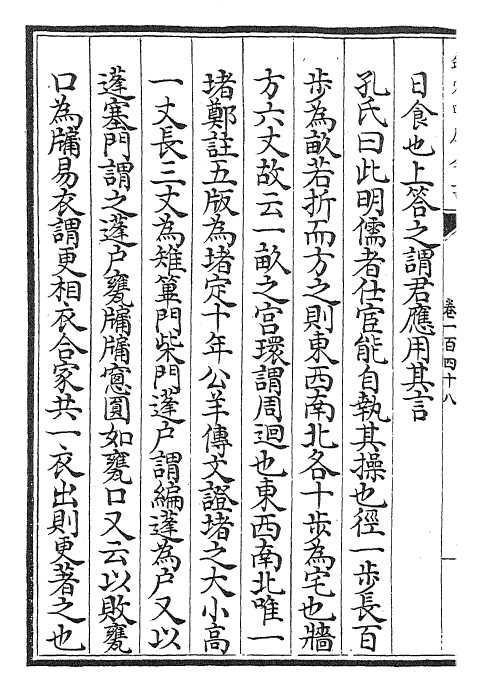 日食也上答之謂君應用其言
孔氏曰此明儒者仕宦能自執其操也徑一步長百
步為畝若折而方之則東西南北各十步為宅也牆
方六丈故云一畝之宮環謂周迴也東西南北唯一
堵鄭註五版為堵定十年公羊傳文證堵之大小高
一丈長三丈為雉篳門柴門蓬户謂編蓬為户又以
蓬塞門謂之蓬户甕牖牖窻圓如甕口又云以敗甕
口為牖易衣謂更相衣合家共一衣出則更著之也
卷一百四十八